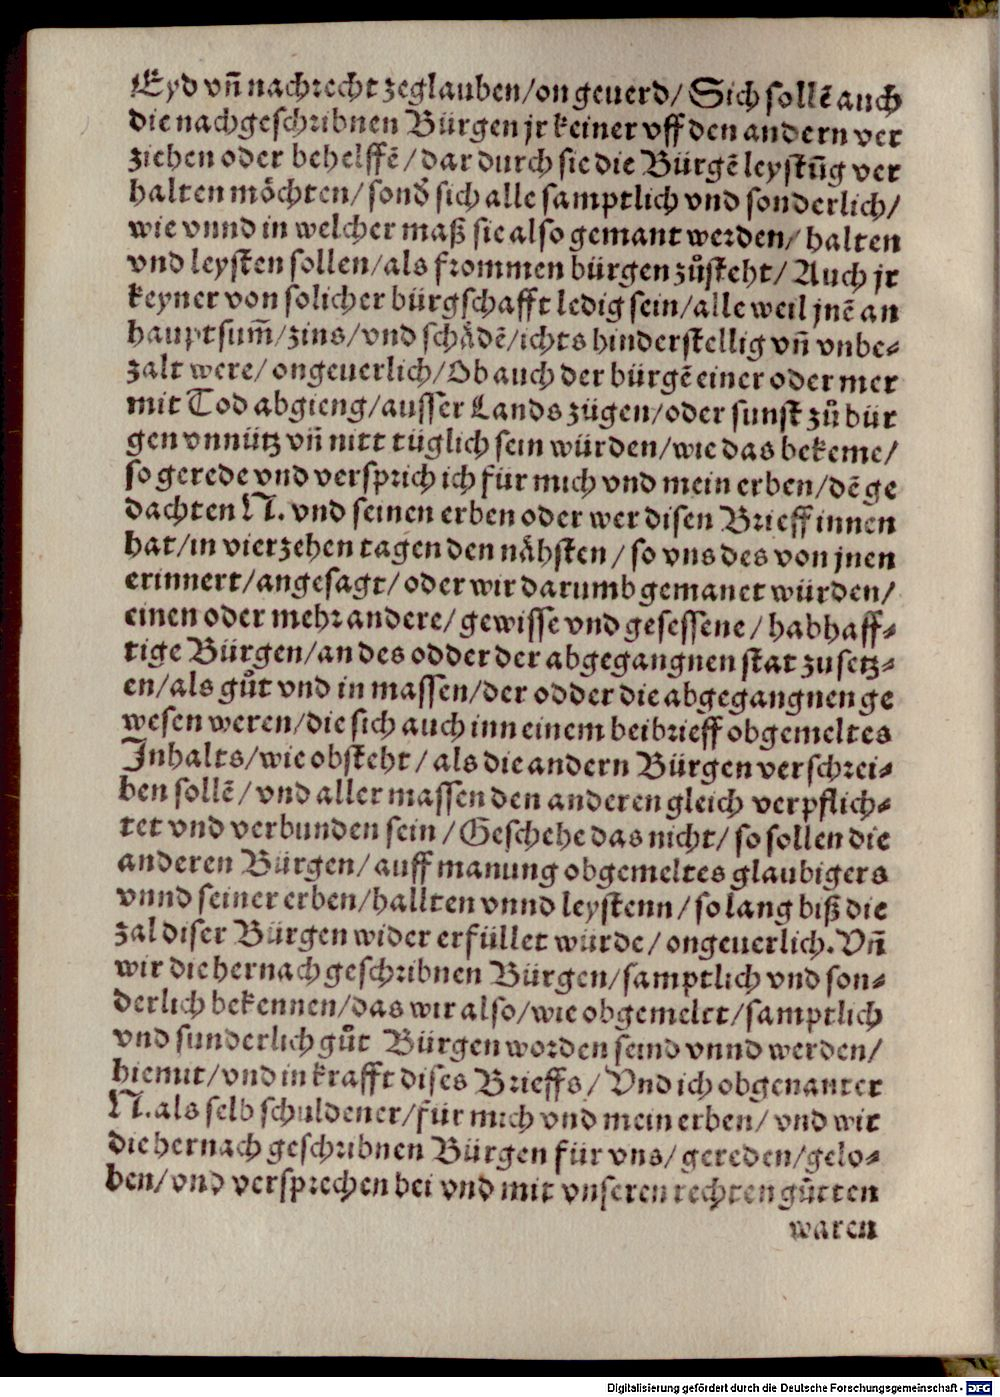 Eyd vñ nachrecht zeglauben/on geuerd/ Sich sollẽ auch
die nachgeschribnen Bürgen jr keiner vff den andern ver
ziehen oder behelffẽ/dar durch sie die Bürgẽ leystũg ver
halten möchten/sonđ sich alle samptlich vnd sonderlich/
wie vnnd in welcher maß sie also gemant werden/halten
vnd leysten sollen/als frommen bürgen zůsteht/Auch jr
keyner von solicher bürgschafft ledig sein/alle weil jnẽ an
hauptsum̃/zins/vnd schådẽ/ichts hinderstellig vñ vnbe⸗
zalt were/ongeuerlich/Ob auch der bürgẽ einer oder mer
mit Tod abgieng/ausser Lands zügen/oder sunst zů bür
gen vnnütz vñ nitt tüglich sein würden/wie das bekeme/
so gerede vnd versprich ich für mich vnd mein erben/dẽ ge
dachten N. vnd seinen erben oder wer disen Brieff innen
hat/in vierzehen tagen den nåhsten/so vns des von jnen
erinnert/angesagt/oder wir darumb gemanet würden/
einen oder mehr andere/gewisse vnd gesessene/habhaff⸗
tige Bürgen/an des odder der abgegangnen stat zu setz⸗
en/als gůt vnd in massen/der odder die abgegangnen ge
wesen weren/die sich auch inn einem beibrieff obgemeltes
Inhalts/wie obsteht/als die andern Bürgen verschrei⸗
ben sollẽ/vnd aller massen den anderen gleich verpflich⸗
tet vnd verbunden sein/Geschehe das nicht/so sollen die
anderen Bürgen/auff manung obgemeltes glaubigers
vnnd seiner erben/hallten vnnd leystenn/so lang biß die
zal diser Bürgen wider erfüllet würde/ongeuerlich. Vñ
wir die hernach geschribnen Bürgen/samptlich vnd son⸗
derlich bekennen/das wir also/wie obgemelt/samptlich
vnd sunderlich gůt Bürgen worden seind vnnd werden/
hiemit/vnd in krafft dises Brieffs/Vnd ich obgenanter
N. als selb schuldener/für mich vnd mein erben/vnd wir
die hernach geschribnen Bürgen für vns/gereden/gelo⸗
ben/vnd versprechen bei vnd mit vnseren rechten gůtten
waren
Digitalisierung gefördert durch die Deutsche Forschungsgemeinschaft - DFG